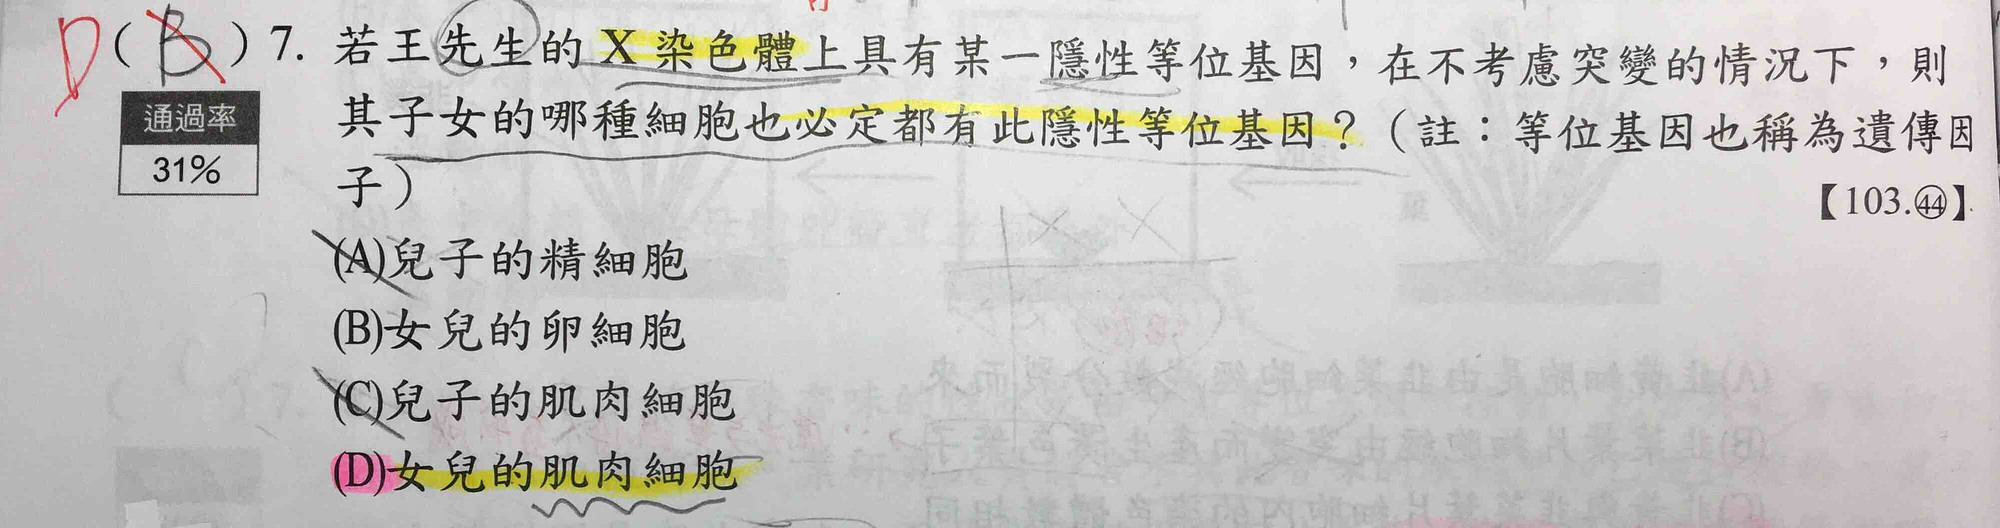 D ( B ) 7. 若王先生的 X 染色體上具有某一隱性等位基因，在不考慮突變的情況下，則
通過率
31%
其子女的哪種細胞也必定都有此隱性等位基因？（註：等位基因也稱為遺傳因
子）
【103.㊹】
(A)兒子的精細胞
(B)女兒的卵細胞
(C)兒子的肌肉細胞
(D)女兒的肌肉細胞